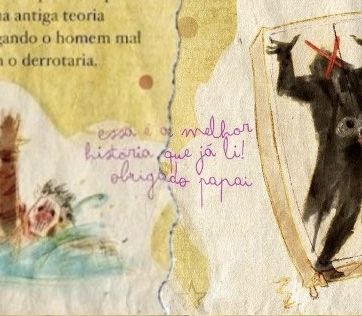 a antiga teoria
gando o homem mal
o derrotaria.
essa é a melhor
história que já li!
obrigado papai